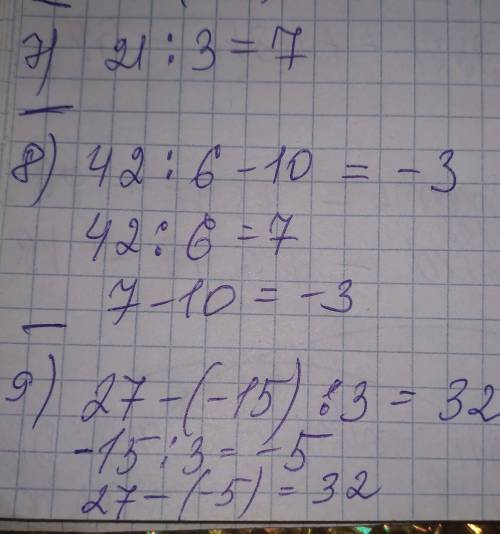 7) 21 : 3 = 7
8) 42 : 6 - 10 = - 3
42 : 6 = 7
7 - 10 = - 3
9) 27 - (-15) : 3 = 32
-15 : 3 = -5
27 - (-5) = 32